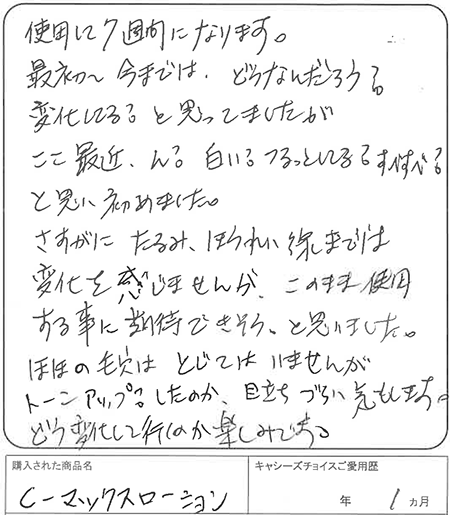 使用して7週間になります。
最初〜今までは、どうなんだろう?
変化してる?と思ってましたが
ここ最近、ん?白い?つるっとしてる?すべすべ?
と思い初めました。
さすがにたるみ、ほうれい線までは
変化を感じませんが、このまま使用
する事に期待できそう、と思いました。
ほほの毛穴はとじてはいませんが
トーンアップ?したのか、目立ちづらい気もします。
どう変化して行くのか楽しみです
購入された商品名
キャシーズチョイスご愛用歴
Cーマックスローション
年 1ヵ月